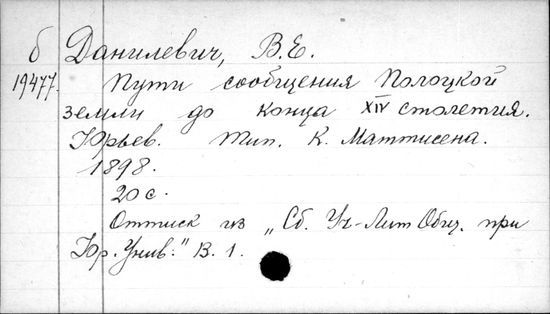 б Данилевич, В.Е.
19477. Пути сообщения Полоцкой
земли до конца XIV столетия.
Юрьев. Тип. К. Маттисена.
1898.
20 с.
Оттиск из „Сб. Уч-Лит Общ. при
Юр. Унив." В. 1.